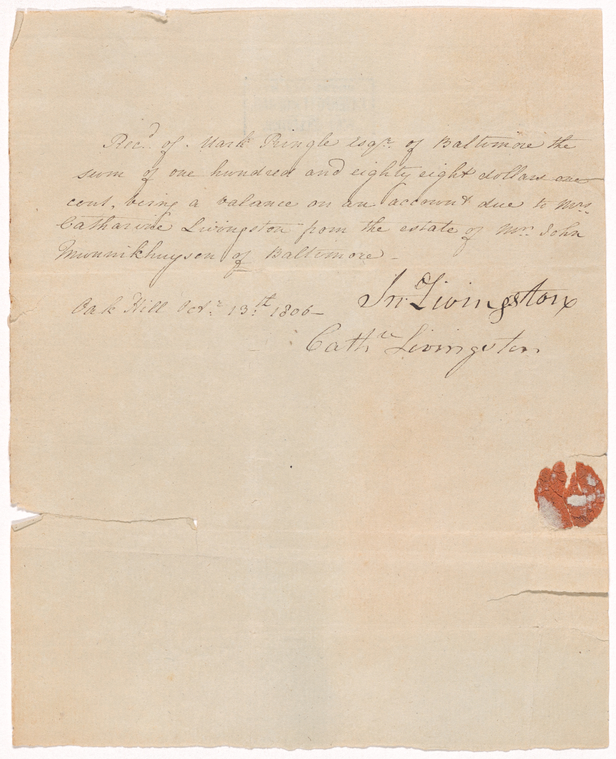 Rec.d of Mark Pringle Esq.r of Baltimore the
sum of one hundred and eighty eight dollars one
cent, being a balance on an account due to Mrs.
Catharine Livingston from the estate of Mr. John
Monnikhuyson of Baltimore -
Oak Hill Oct.r 13.th 1806 -
Jn.o Livingston
Cath.ne Livingston